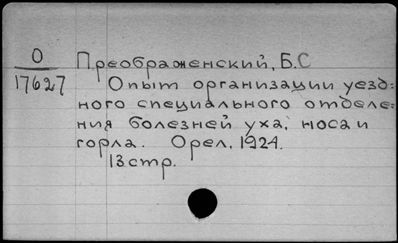 О
17627
Преображенский, Б.С
Опыт организации уезд=
ного специального отделе=
ния болезней уха, носа и
горла. Орел, 1924.
13 стр.